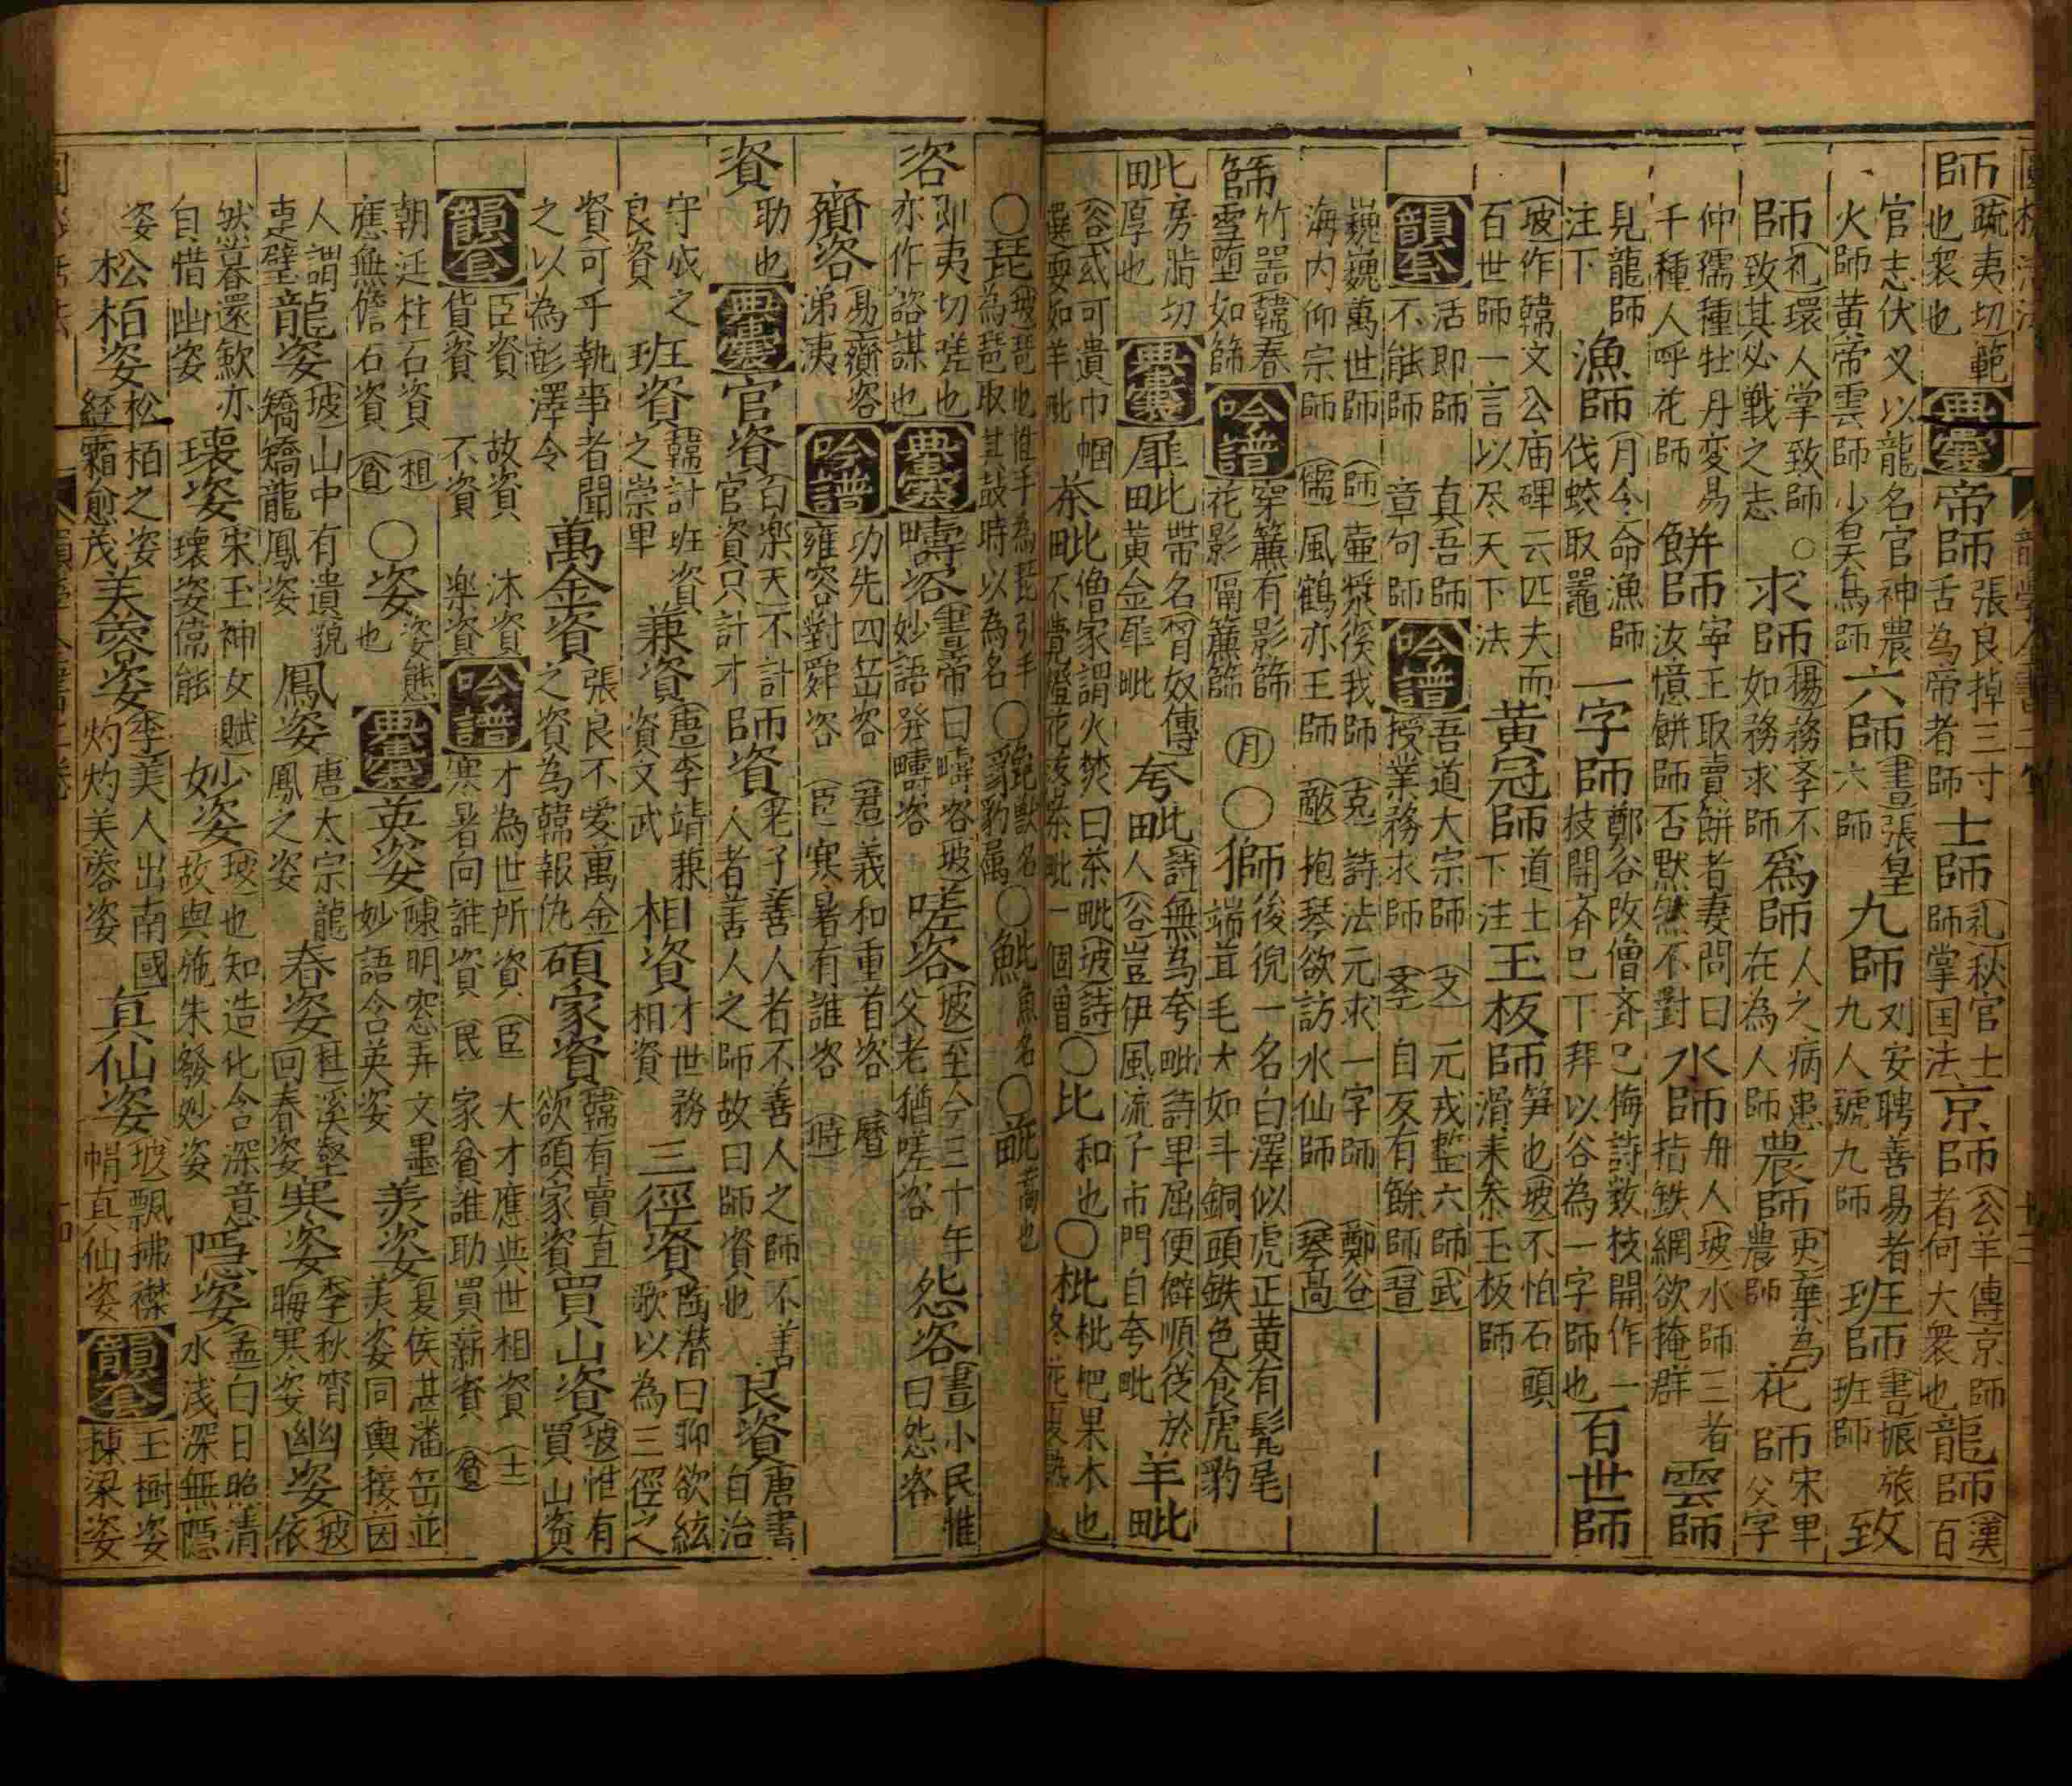 師疏夷切範也衆也典囊帝師張良掉三寸舌為帝者師士師(礼)秋官士師掌囯法京師(公羊傳京師者何大衆也龍師(漢)百
官志伏又以龍名官神農火師黄帝雲師少昊鳥師六師(書)張皇六師九師刘安聘善易者九人號九師班師(書)振旅班師致
師(礼)環人掌致師致其必戰之志○求師(楊)務斈不如務求師爲師人之病患在為人師農師(史)棄為農師花師宋单父字
仲孺種牡丹変易千種人呼花師餅師寧王取賣餅者妻問曰汝憶餅師否黙然不對水師舟人(坡)水師三者指鉄網欲掩群雲師
見龍師注下漁師(月令命漁師伐蛟取鼉一字師鄭谷改僧斉己梅詩数枝開作一枝開斉己下拜以谷為一字師也百世師
(坡)作韓文公庙碑云匹夫而百世師一言以尽天下法黄冠師道士下注玉板師笋也(坡)不怕石頭滑来叅玉板師
韻套活即師不能師真吾師章句師吟譜吾道大宗師授業務求師(文)元戎整六師(武)(斈)自友有餘師(習)
巍巍萬世師海内仰宗師(師)壷漿徯我師(儒)風鶴亦王師(克)詩法元求一字師(鄭谷)(敵)抱琴欲訪水仙師(琴高)
篩竹噐(韓)春雪堕如篩吟譜穿簾有影篩花影隔簾篩㊊○獅後猊一名白澤似虎正黄有髯尾端茸毛大如斗銅頭鉄色食虎豹
毗房脂切厚也典囊犀毗帶名(匈奴傳)黄金犀毗夸毗(詩)無為夸毗詩卑屈便僻順從於人(谷)豈伊風流子市門自夸毗羊毗
(谷)或可遺巾幗選耎如羊毗茶毗僧家謂火焚曰茶毗(坡詩)不覚燈花落茶毗一個僧○比和也○枇枇杷果木也冬花夏熟
○琵(坡)琵也推手為琵引手為琶取其鼓時以為名○貔貔獸名豹属○魮魚名○蒿也
咨則夷切嗟也亦作諮謀也典囊疇咨(書)帝曰疇咨(坡)妙語發疇咨嗟咨(坡)至今三十年父老猶嗟咨怨咨(書)小民惟曰怨咨
齎咨(易)齎咨涕洟吟譜功先四岳咨雍容對舜咨(君)義和重首咨(曆)(臣)寒暑有誰咨(時)
資助也典囊官資(白樂天)不計官資只計才師資(老子)善人者不善人之師不善人者善人之師故曰師資也良資唐書自治
守成之良資班資(韓)計班資之崇卑兼資(唐)李靖兼資文武相資才世務相資三徑資陶潜曰聊欲絃歌以為三徑之
資可乎執事者聞之以為彭澤令萬金資張良不愛萬金之資為韓報仇碩家資(韓)有賣直欲碩家資買山資(坡)惟有買山資
韻套臣資貨資故資不資沐資楽資吟譜才為世所資(臣)寒暑向誰資(民)大才應與世相資(士)家貧誰助買薪資(貧)
朝廷柱石資(相)應無儋石資(貧)○姿姿態也典囊英姿(陳)明窓弄文墨妙語含英姿美姿夏侯湛潘岳並美姿同輿接茵
人謂連璧龍姿(坡)山中有遺貌矯矯龍鳳姿鳳姿(唐)太宗龍鳳之姿春姿(杜)溪壑回春姿寒姿(李)秋宵晦寒姿幽姿(坡)依
然春還歛亦自惜幽姿瓌姿宋玉神女賦瓌姿偉態妙姿(坡)也知造化含深意故與施朱發妙姿隠姿(孟)白日照清水浅深無隠
姿松栢姿松栢之姿経霜愈茂芙蓉姿(李)美人出南國灼灼芙蓉姿真仙姿(坡)飄拂襟帩真仙姿韻套玉樹姿棟梁姿